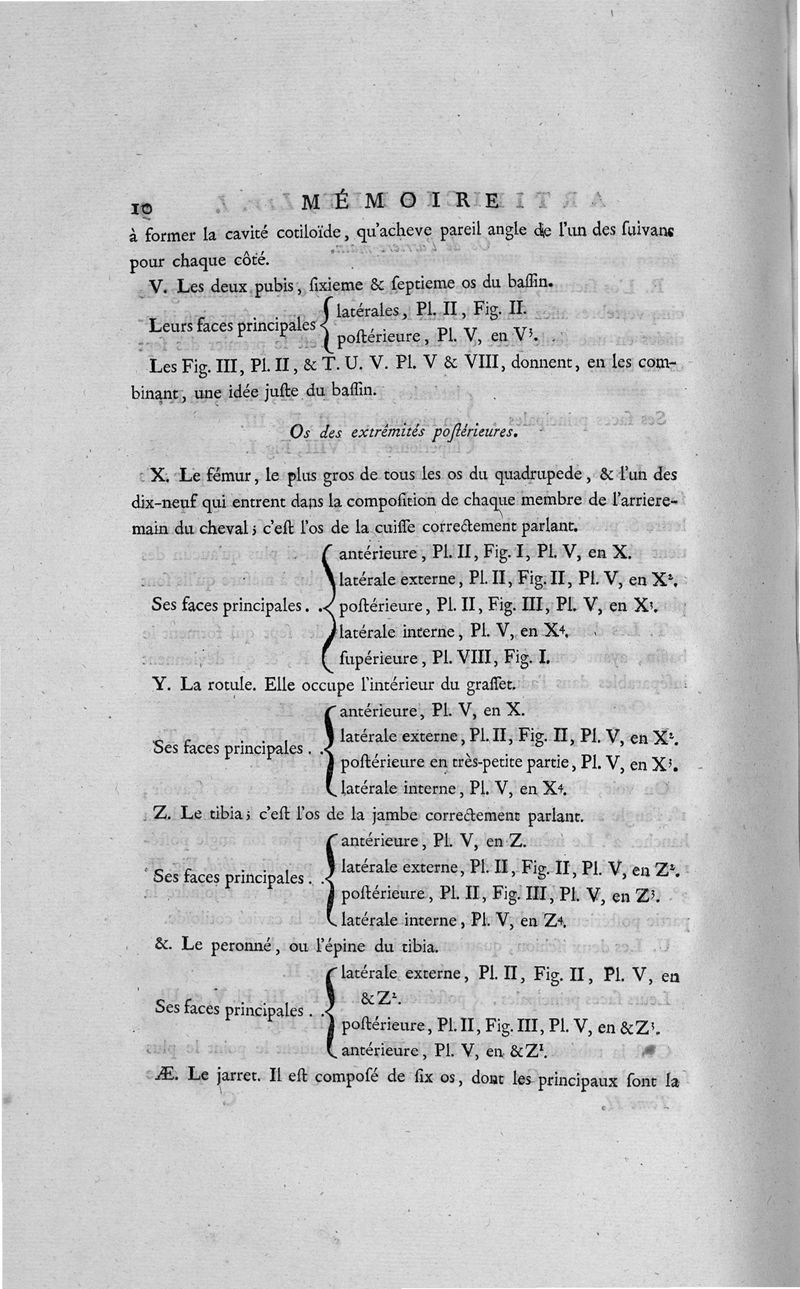 10 MÉMOIRE
à former la cavité cotiloïde, qu'acheve pareil angle de l'un des ſuivans
pour chaque côté.
V. Les deux pubis, ſixieme & ſeptieme os du baſſin.
Leurs faces principales { latérales, Pl. II, Fig. II.
poſtérieure, Pl. V, en V³.
Les Fig. III, Pl. II, & T. U. V. Pl. V & VIII, donnent, en les com-
binant, une idée juſte du baſſin.
Os des extrémités poſtérieures.
X. Le fémur, le plus gros de tous les os du quadrupede, & l'un des
dix-neuf qui entrent dans la compoſition de chaque membre de l'arriere-
main du cheval; c'eſt l'os de la cuiſſe correctement parlant.
antérieure, Pl. II, Fig. I, Pl. V, en X.
latérale externe, Pl. II, Fig. II, Pl. V, en X².
Ses faces principales. . { poſtérieure, Pl. II, Fig. III, Pl. V, en X³.
latérale interne, Pl. V, en X⁴.
ſupérieure, Pl. VIII, Fig. I.
Y. La rotule. Elle occupe l'intérieur du graſſet.
antérieure, Pl. V, en X.
latérale externe, Pl. II, Fig. II, Pl. V, en X².
Ses faces principales . . { poſtérieure en très-petite partie, Pl. V, en X³.
latérale interne, Pl. V, en X⁴.
Z. Le tibia; c'eſt l'os de la jambe correctement parlant.
antérieure, Pl. V, en Z.
latérale externe, Pl. II, Fig. II, Pl. V, en Z².
Ses faces principales . . { poſtérieure, Pl. II, Fig. III, Pl. V, en Z³.
latérale interne, Pl. V, en Z⁴.
&. Le peronné, ou l'épine du tibia.
latérale externe, Pl. II, Fig. II, Pl. V, en
& Z².
Ses faces principales . . { poſtérieure, Pl. II, Fig. III, Pl. V, en & Z³.
antérieure, Pl. V, en & Z¹.
Æ. Le jarret. Il eſt compoſé de ſix os, dont les principaux ſont la